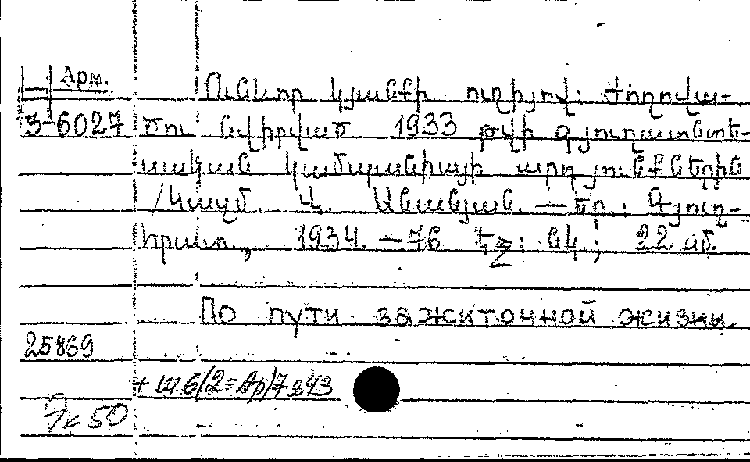 Арм.
Ունևոր կյանքի ուղիով: Ժողովա-
3-6027 ծու նվիրված 1933 թվի գյուղատնտե-
սական կամպանիայի արդյունքներին
/Կազմ. Ա. Անանյան. — Եր.: Գյուղ-
հրատ., 1934. — 76 էջ: նկ; 22 սմ.
По пути зажиточной жизни.
25869
+ Ш6/2=Ар/7343
Эк 50